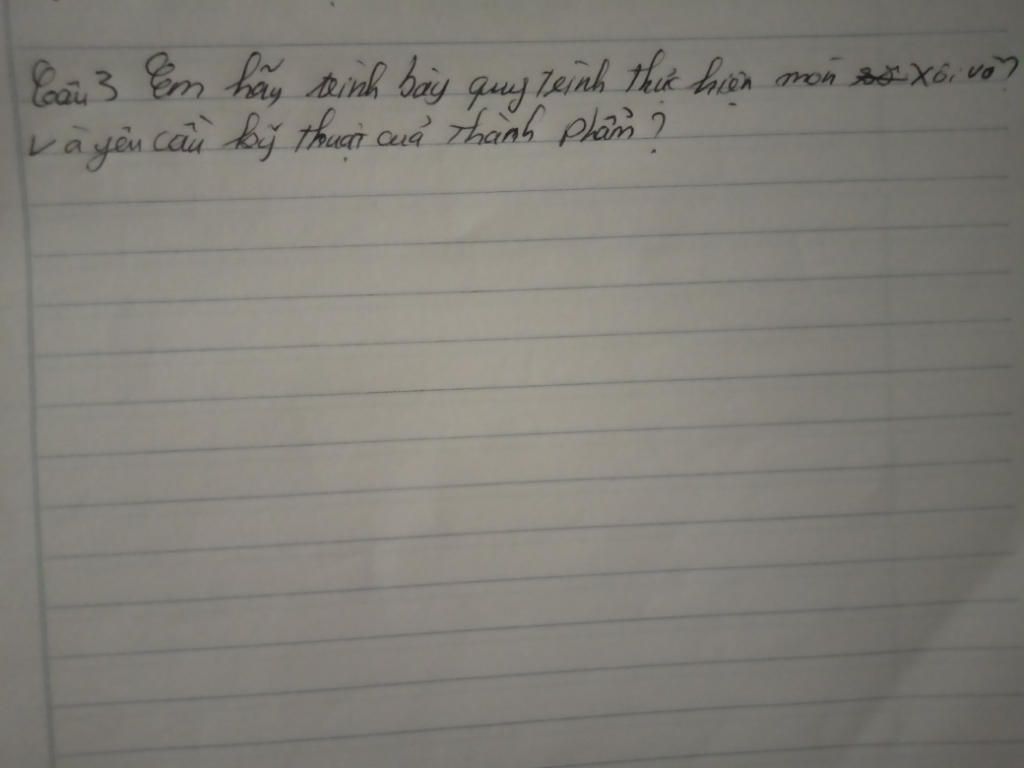 Câu 3 Em hãy trình bày quy trình thực hiện món xôi vò?
và yêu cầu kỹ thuật của thành phẩm?